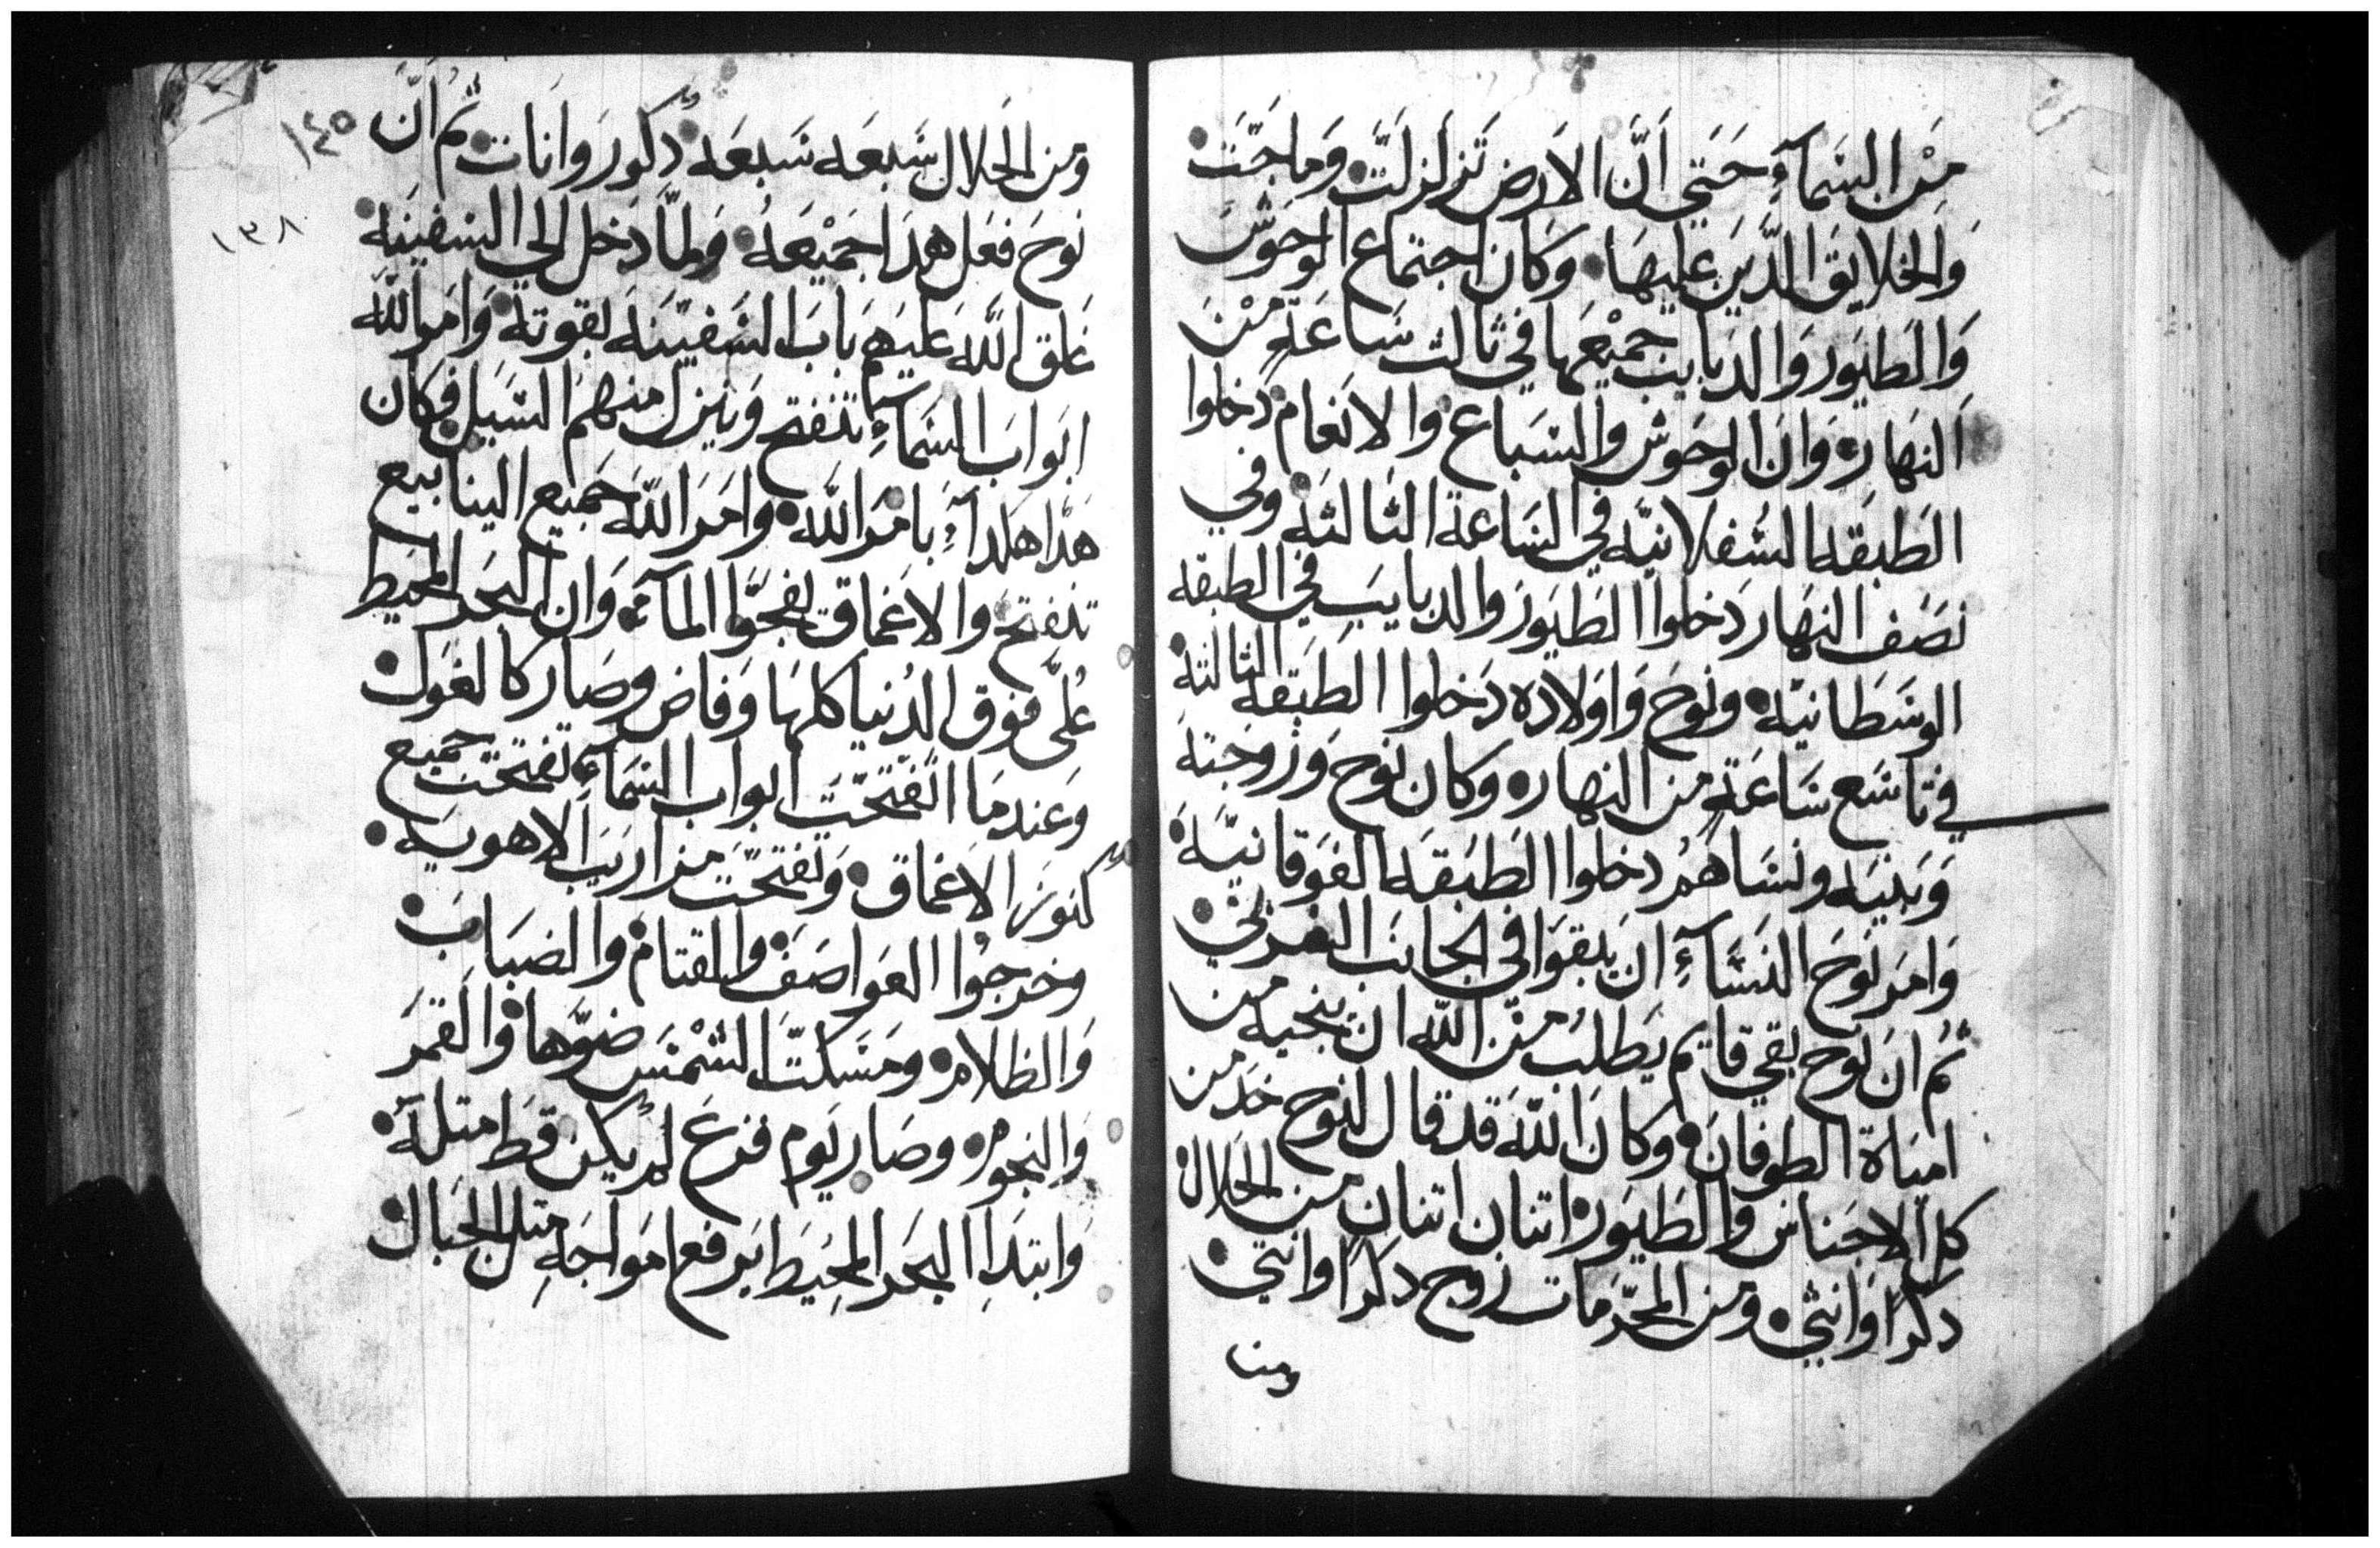 مِنْ السَمآءِ حَتي اَنَّ الاَرض تَزلزلتْ وَماجَت
وَالخلايق الدَّين عليهَا وكان اجتماع الوحوَش
وَالطيَور وَالدبايب جميْعَها في ثالث سَاعَةٍ منْ
النهَار وَان الوحوش والسَباع والانعَام دخلوا
الطَبقه السُفلانيّه في السَاعة الثَالثَة وفي
نصَف النهَار دَخلوا الطَيوَر والدبايبَ في الطبقه
الوسَطانيّه ونوحَ وَاوَلاده دَخلوا الطَبقه الثالثة
في تاسَع سَاعَةٍ من النهار وكان نوحَ وَزوجَتة
وَبنيَه ونسَاهمُ دخلوا الطَبَقه الفوَقانيّة
وَامَر نوَحَ النسَّآءِ ان يبقوَا في الجانبَ الغربي
ثمُ انَ نوح بقي قايم يَطلبُ منَ اللّه ان ينجيه من
امياة الطوفانَ وكانَ اللّه قد قال لنوح خد من
كل الاجناسَ والطيَور اتنان اتنان من الحلال
دكراً وَانثي ومن المحرّمات زوج دكراً وانتي
ومن
١٤٥
ومن الحَلال سَبعَه سَبعَه دكور وَانات ثمُ اَنّ
١٣٨
نوحَ فعَل هدَا جميْعَه ولمّا دَخل الي السَفينَه
غلق اللّه عليَهم بَابَ السَفيَنه بقوتة وَامر اللّه
ابوابَ السَمآءِ تنفتح وَينزل منهمُ السَيل فكان
هدا هكدا بامَر اللّه وامَر اللّه جميع الينابيع
تنفتح والاعَماق تفجّرَ المآء وَان البحَر المحيَط
عُليّ فوق الدُنيا كلها وَفاض وصَار كالغوَل
وَعندمَا انفتحَت ابوابَ السَمآءِ تفتحت جميع
كنوَز الاعماق وَتفتحّت مزاريَب الاهويَة
وخرجوُا العوَاصَفَ والقتامَ والضبَابَ
وَالظلام ومسَكتّ الشمْسَ ضوّها وَالقمَر
وَالنجوم وصَار يَوم فزعَ لم يكن قط متلهَ
وَابتدا البحَر المحيَط يَرفع امَواجَهِ متل الجبَال